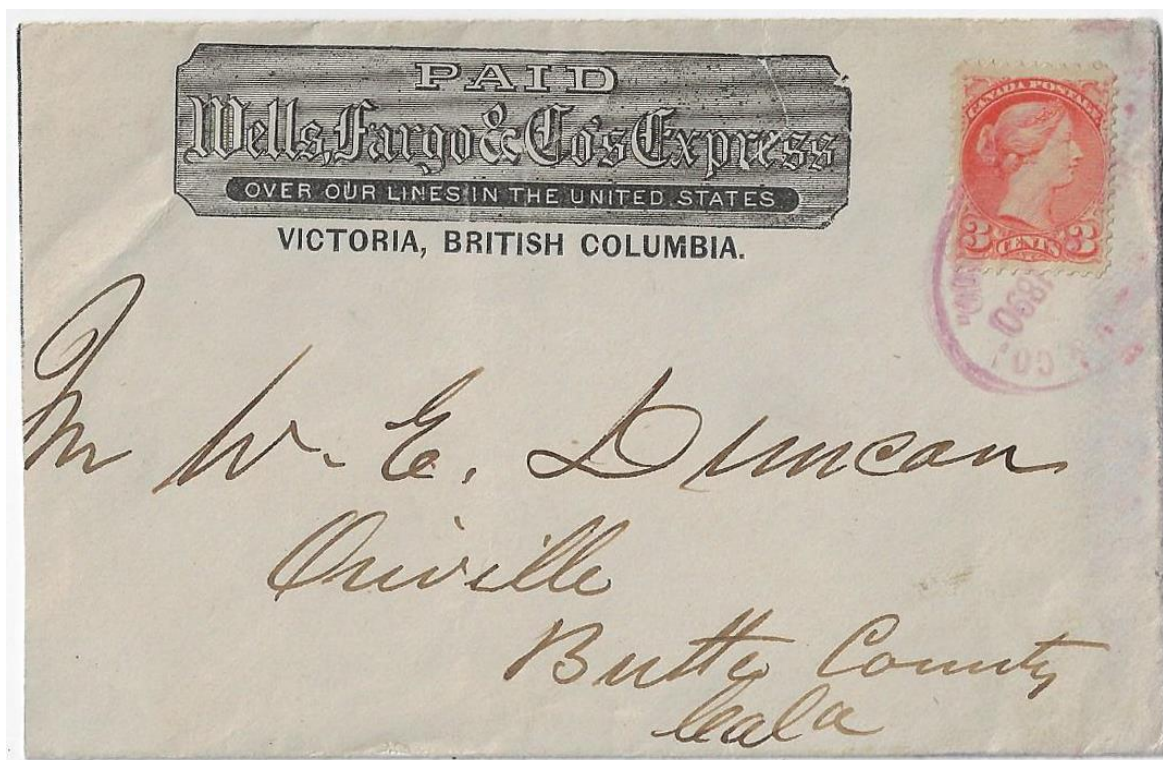 PAID
Wells, Fargo & Co's Express
OVER OUR LINES IN THE UNITED STATES
VICTORIA, BRITISH COLUMBIA.
CANADA POSTAGE
3 CENTS 3
1890
CO.
Mr W. E. Duncan
Oroville
Butte County
Cala